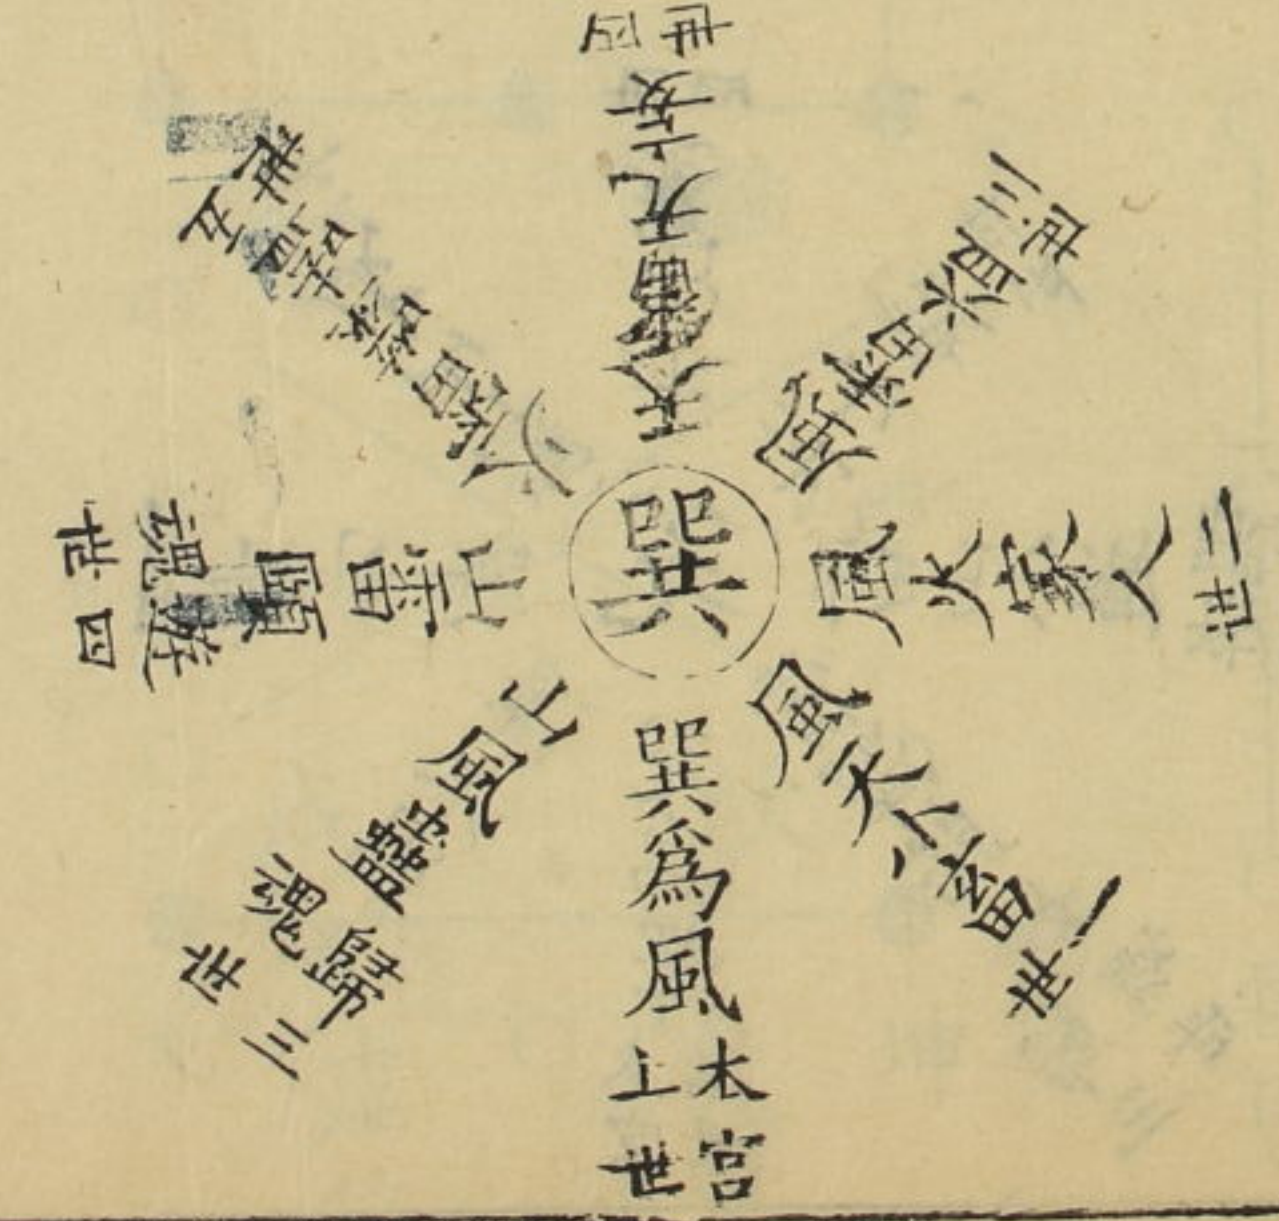 巽
巽為風
木宮
上世
風天小畜
一世
風火家人
二世
風雷益
三世
天雷无妄
四世
火雷噬嗑
五世
山雷頤
遊魂
四世
山風蠱
歸魂
三世